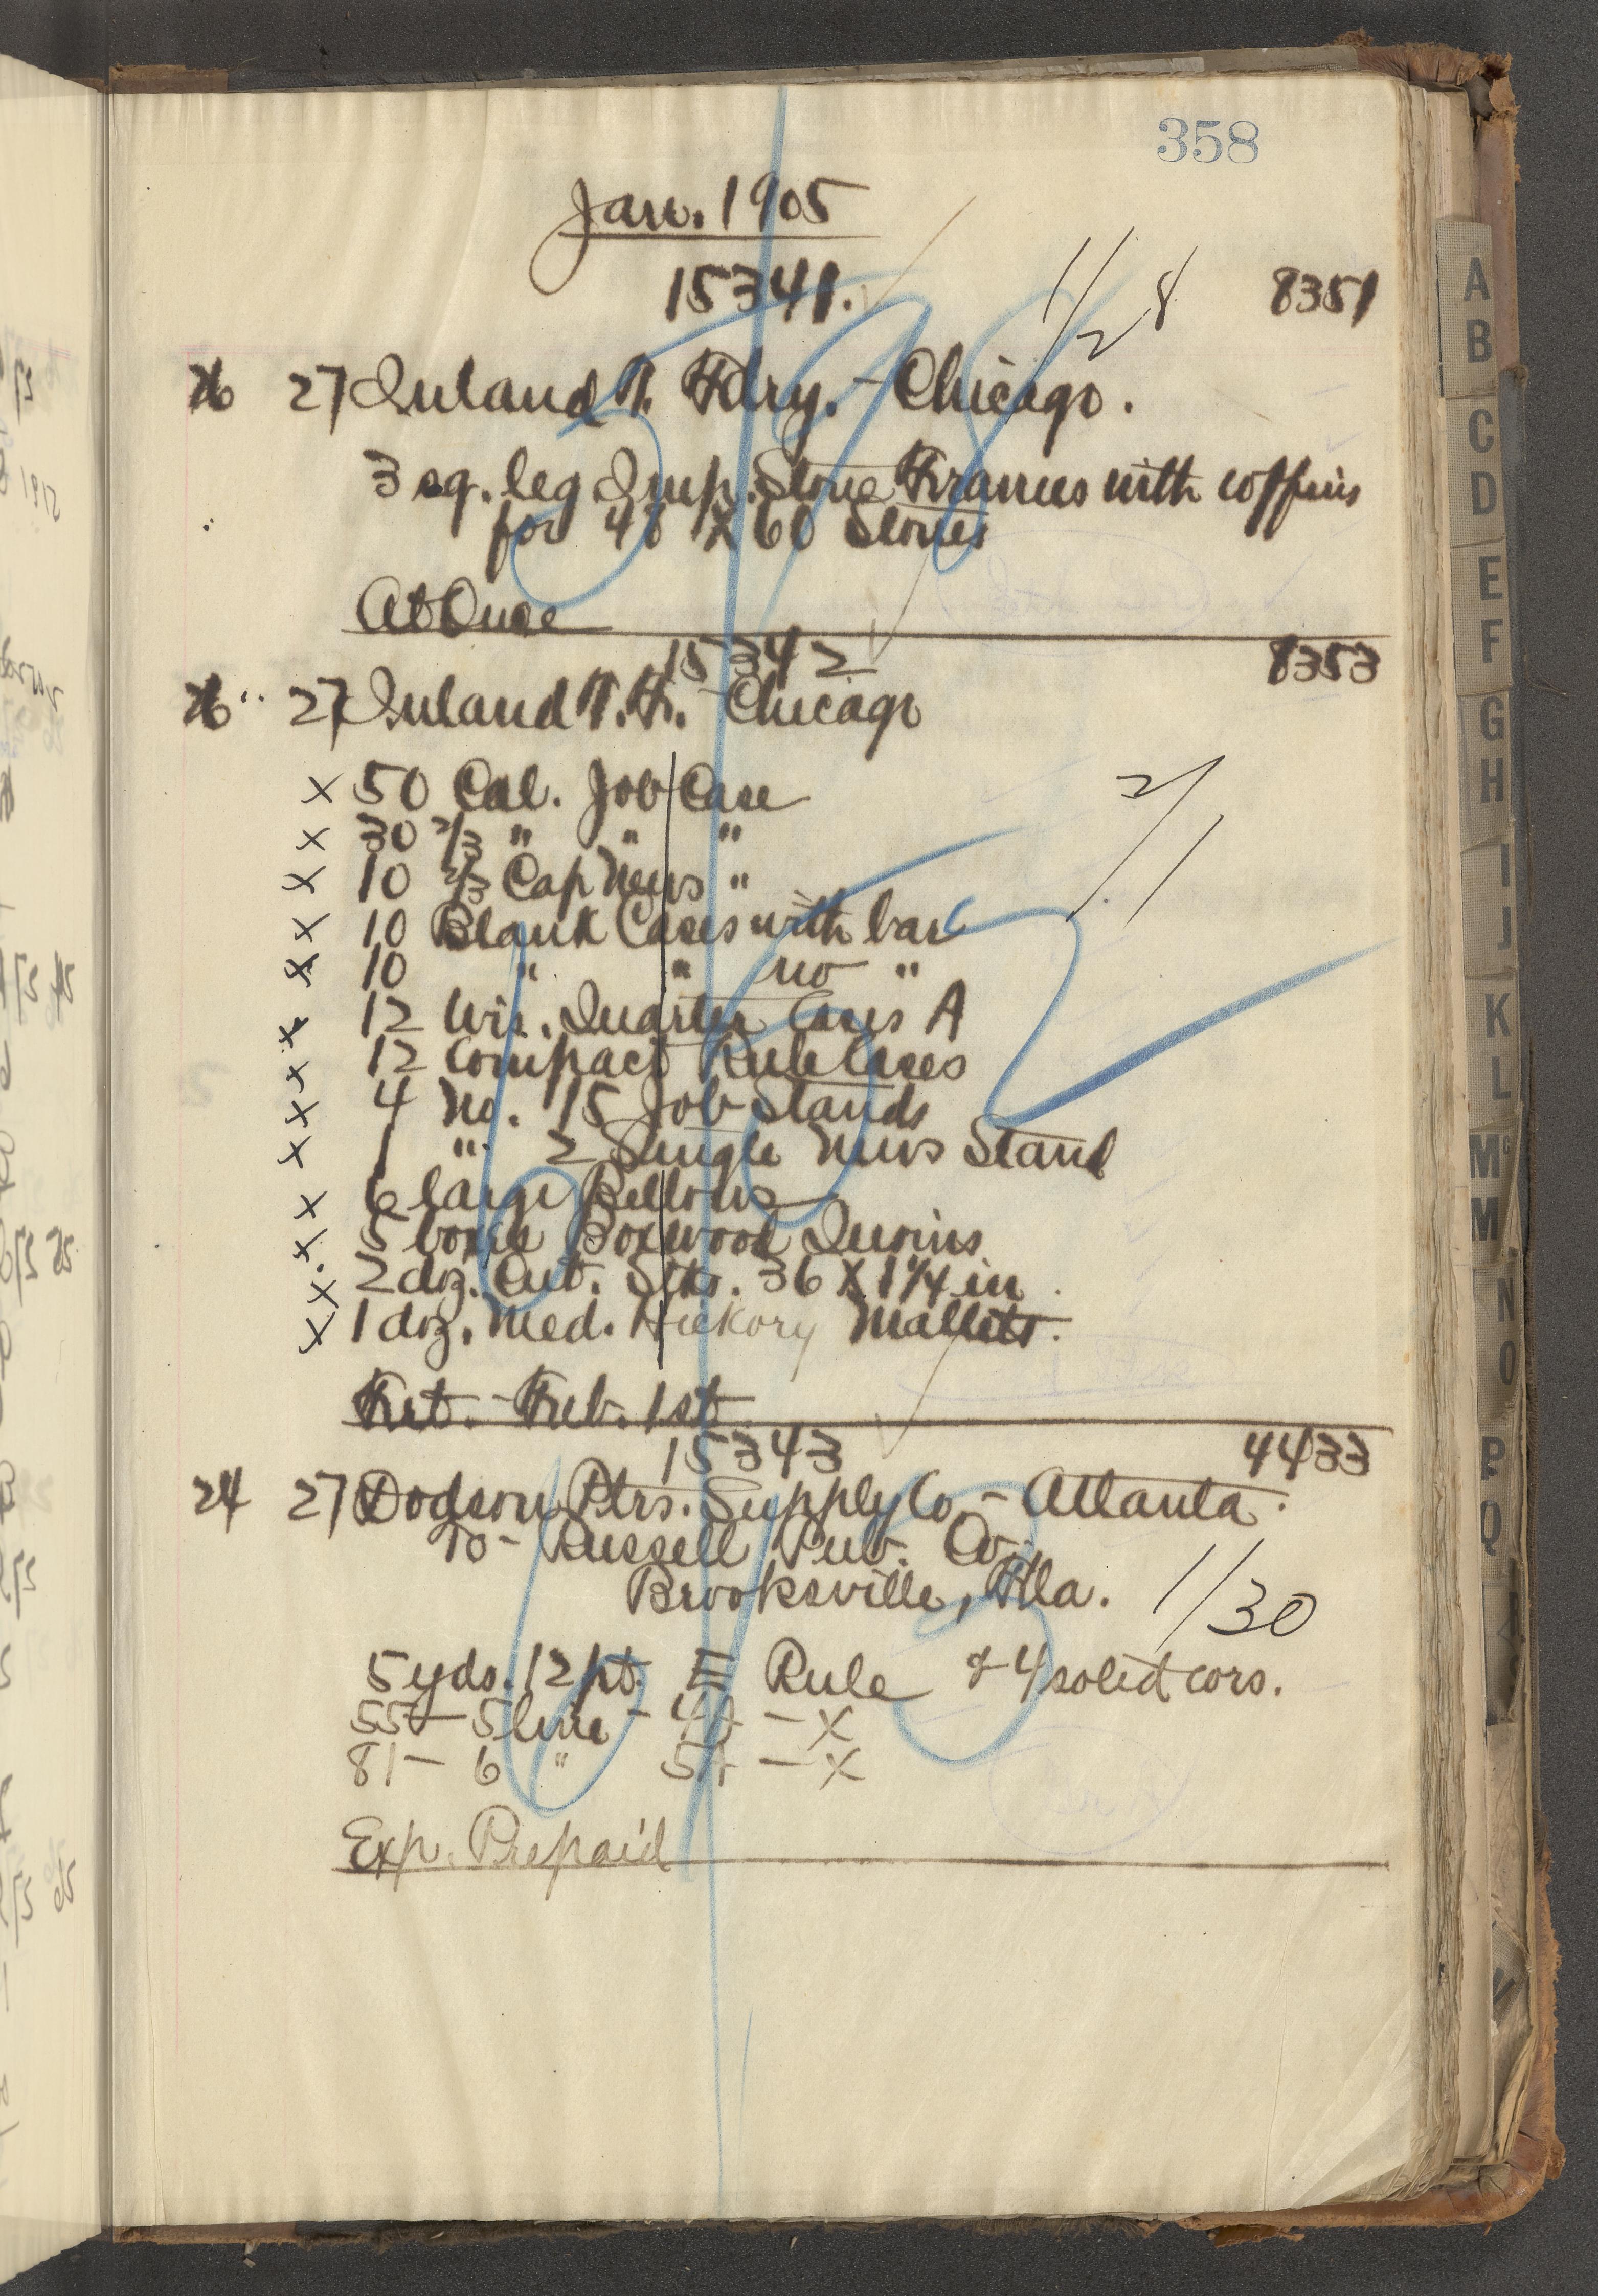 358
Jan. 1905
15341. 1/28 8351
26 27 Inland T. Fdry. - Chicago.
3 sq. leg Imp. Stone Frames with coffins
for 48 x 60 Stones
At Once
15342 8353
26 " 27 Inland T. F. - Chicago
x 50 Cal. Job Case 2/1
x x 30 2/3 " " "
x x 10 2/3 Cap News "
x x 10 Blank Cases with bar
x x 10 " " no "
x x 12 Wis. Quarter Cases A
x x 12 Compact Rule Cases
x x 4 No. 15 Job Stands
x x 1 " 2 Single News Stand
x x 6 large Bellows
x x 5 boxes Boxwood Quoins
x x 2 doz. Cut. Stks. 36 x 1 1/4 in.
x x 1 doz. Med. Hickory Mallets.
Frt. - Feb. 1st
15343 4433
24 27 Dodson Ptrs. Supply Co. - Atlanta.
To - Russell Pub. Co.
Brooksville, Fla. 1/30
5 yds. 12 pt. Rule & 4 solid cors.
55 - 5 line - - X
81 - 6 " - X
Exp. Prepaid
A
B
C
D
E
F
G
H
I
J
K
L
Mc
M
N
O
P
Q